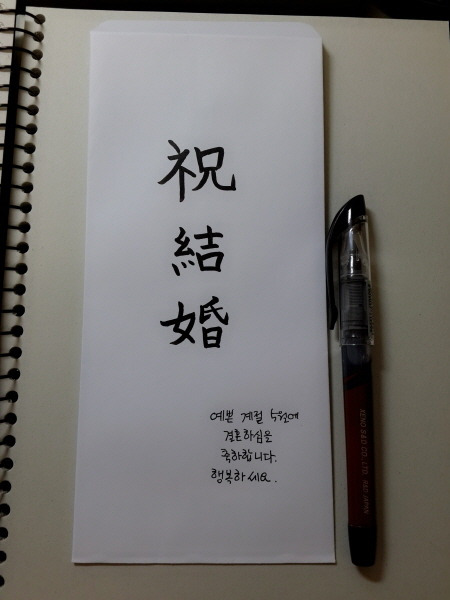 祝
結
婚
예쁜 계절 5월에
결혼하심을
축하합니다.
행복하세요.